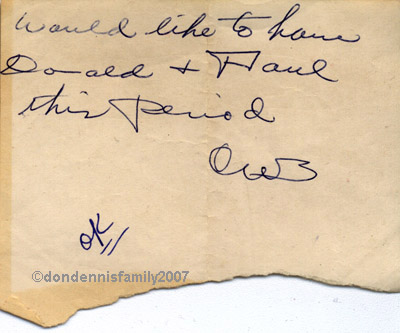 would like to have
Donald + Paul
this Period
OWB
OK
©dondennisfamily2007